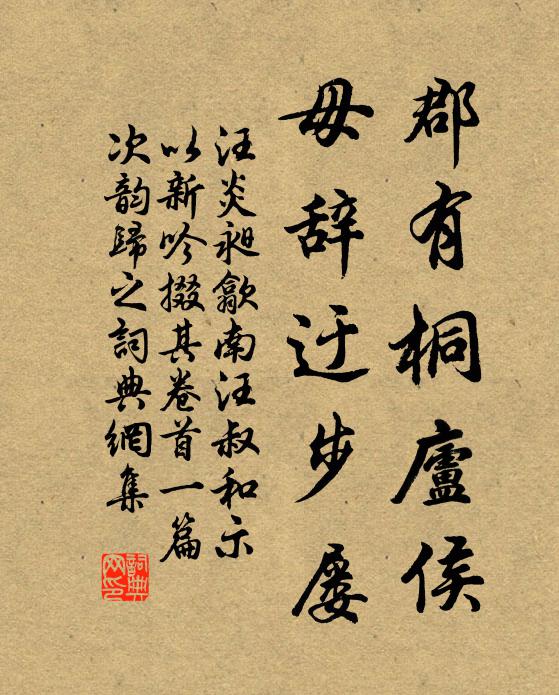 郡有桐廬侯
毋辞迂步屡
汪炎昶歙南汪叔和示
以新吟掇其卷首一篇
次韵歸之詞典網集
詞典網印